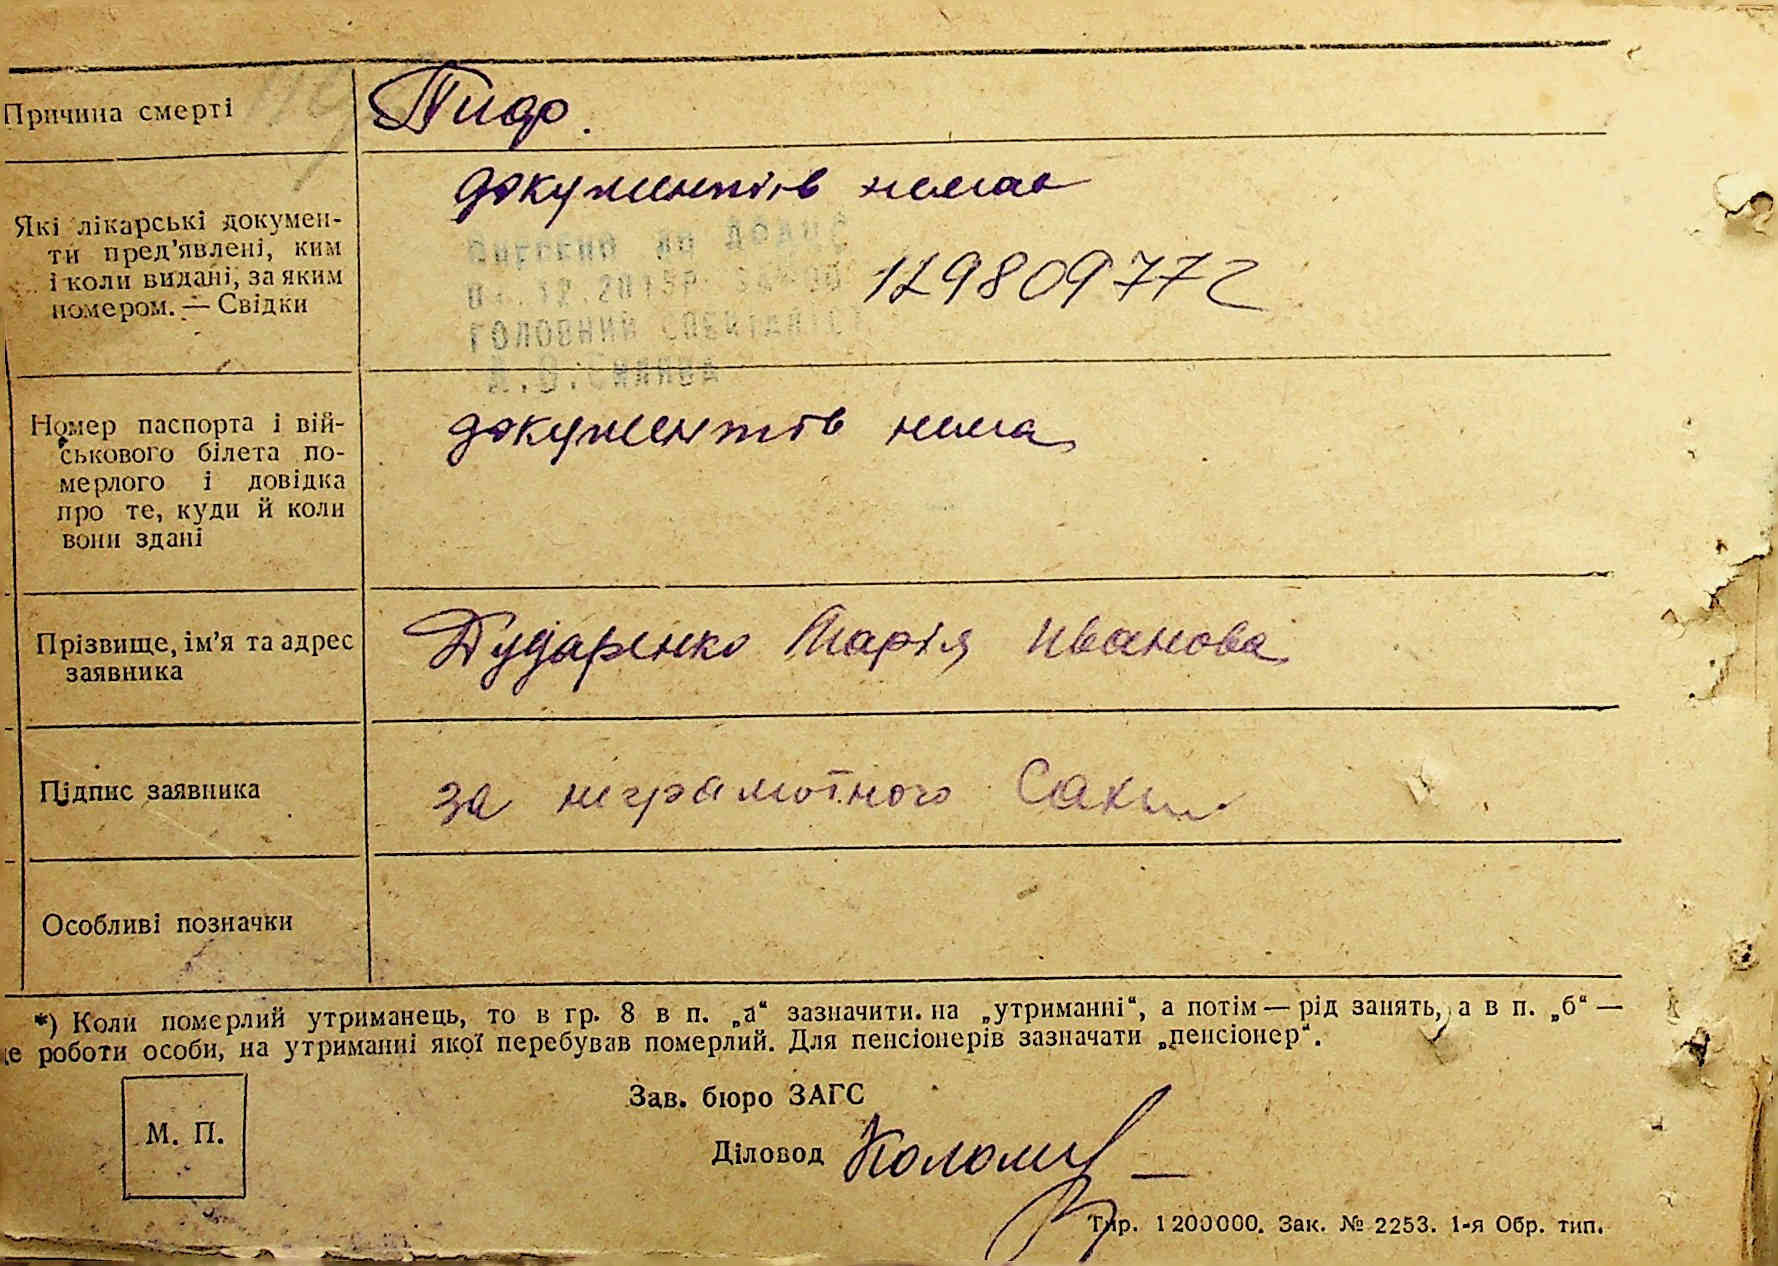 Причина смерті
Тиф.
Які лікарські докумен-
ти пред’явлені, ким
і коли видані, за яким
номером. — Свідки
документів немає
129809772
головний спеціаліст
Номер паспорта і вій-
ськового білета по-
мерлого і довідка
про те, куди й коли
вони здані
документів нема
Прізвище, ім’я та адрес
заявника
Дударенко Марія Иванова
Підпис заявника
за неграмотного
Особливі позначки
*) Коли померлий утриманець, то в гр. 8 в п. „а“ зазначити. на „утриманні“, а потім — рід занять, а в п. „б“ —
це роботи особи, на утриманні якої перебував померлий. Для пенсіонерів зазначати „пенсіонер“.
М. П.
Зав. бюро ЗАГС
Діловод
Тир. 1200000. Зак. № 2253. 1-я Обр. тип.